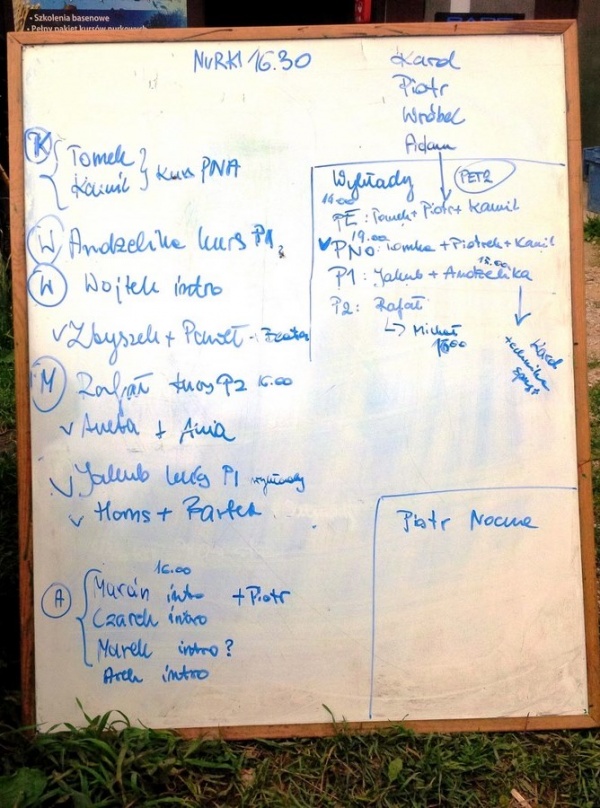 • Szkolenia basenowe
• Pełny pakiet kursów nurkowych
NURKI 16.30
Karol
Piotr
Wróbel
Adam
K
Tomek
Kamil
kurs PNA
W Andżelika kurs P1
W Wojtek intro
✓ Zbyszek + Paweł
M Rafał kurs P2 16.00
✓ Aneta + Ania
✓ Jakub kurs P1 wykłady
✓ Homs + Bartek
16.00
A
Marcin intro + Piotr
Czarek intro
Marek intro?
Arek intro
Wykłady
PETR
PE: Tomek + Piotr + Kamil
19.00
✓ PNO: Tomka + Piotrek + Kamil
18.00
P1: Jakub + Andżelika
P2: Rafał
Michał
Karol
+ technika
sprzęt
Piotr Nocne